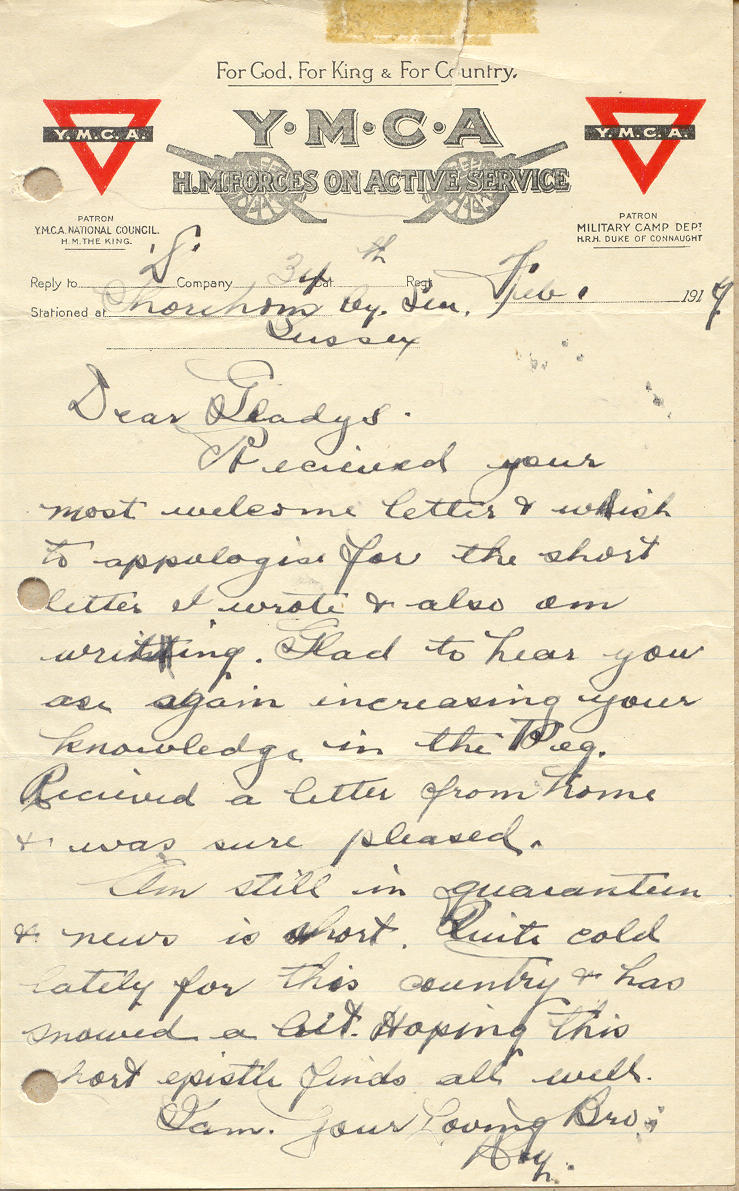 For God, For King & For Country.
Y·M·C·A
H.M. FORCES ON ACTIVE SERVICE
Y.M.C.A.
Y.M.C.A.
PATRON
Y.M.C.A. NATIONAL COUNCIL.
H.M. THE KING.
PATRON
MILITARY CAMP DEPT
H.R.H. DUKE OF CONNAUGHT
Reply to Company 34th Bat. Regt. Feb 1 1917
Stationed at Shoreham by. Sea,
Sussex
Dear Gladys.
Recieved your
most welcome letter & whish
to appologise for the short
letter I wrote & also am
writting. Glad to hear you
are again increasing your
knowledge in the Peg.
Recieved a letter from home
& was sure pleased.
Am still in quaranteen
& news is short. Quite cold
lately for this country & has
snowed a bit. Hoping this
short epistle finds all well.
I am. Your Loving Bro;
Roy.